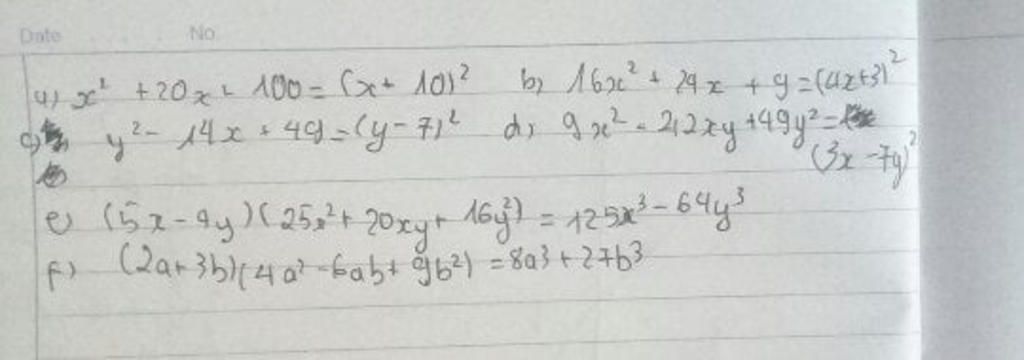 Date No
a) x² + 20x + 100 = (x + 10)² b) 16x² + 24x + 9 = (4x+3)²
c) y² - 14x + 49 = (y - 7)² d) 9x² - 42xy + 49y² =
(3x - 7y)²
e) (5x - 4y)(25x² + 20xy + 16y²) = 125x³ - 64y³
f) (2a + 3b)(4a² - 6ab + 9b²) = 8a³ + 27b³